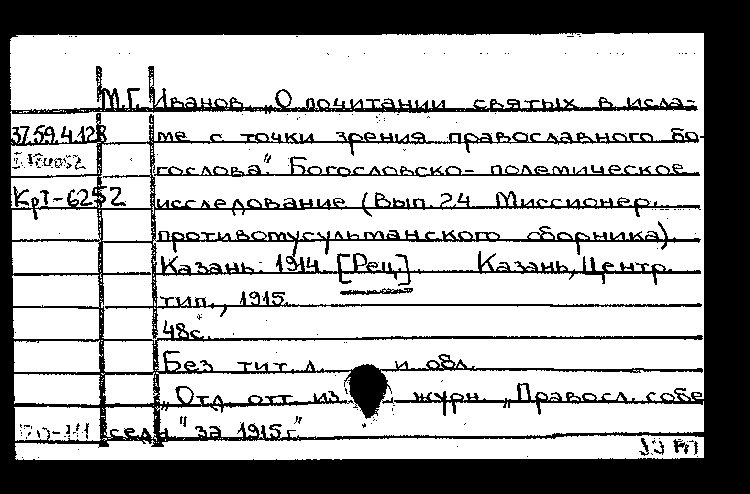 М.Г. Иванов. „О почитании святых в исла-
37.59.4.128 ме с точки зрения православного бо-
гослова". Богословско-полемическое
КрI-6252 исследование (Вып. 24 Миссионер.
противомусульманского сборника).
Казань. 1914. [Рец.] Казань, Центр.
тип., 1915.
48с.
Без тит. л. и обл.
„Отд. отт. из журн. „Правосл. собе
седн" за 1915г."